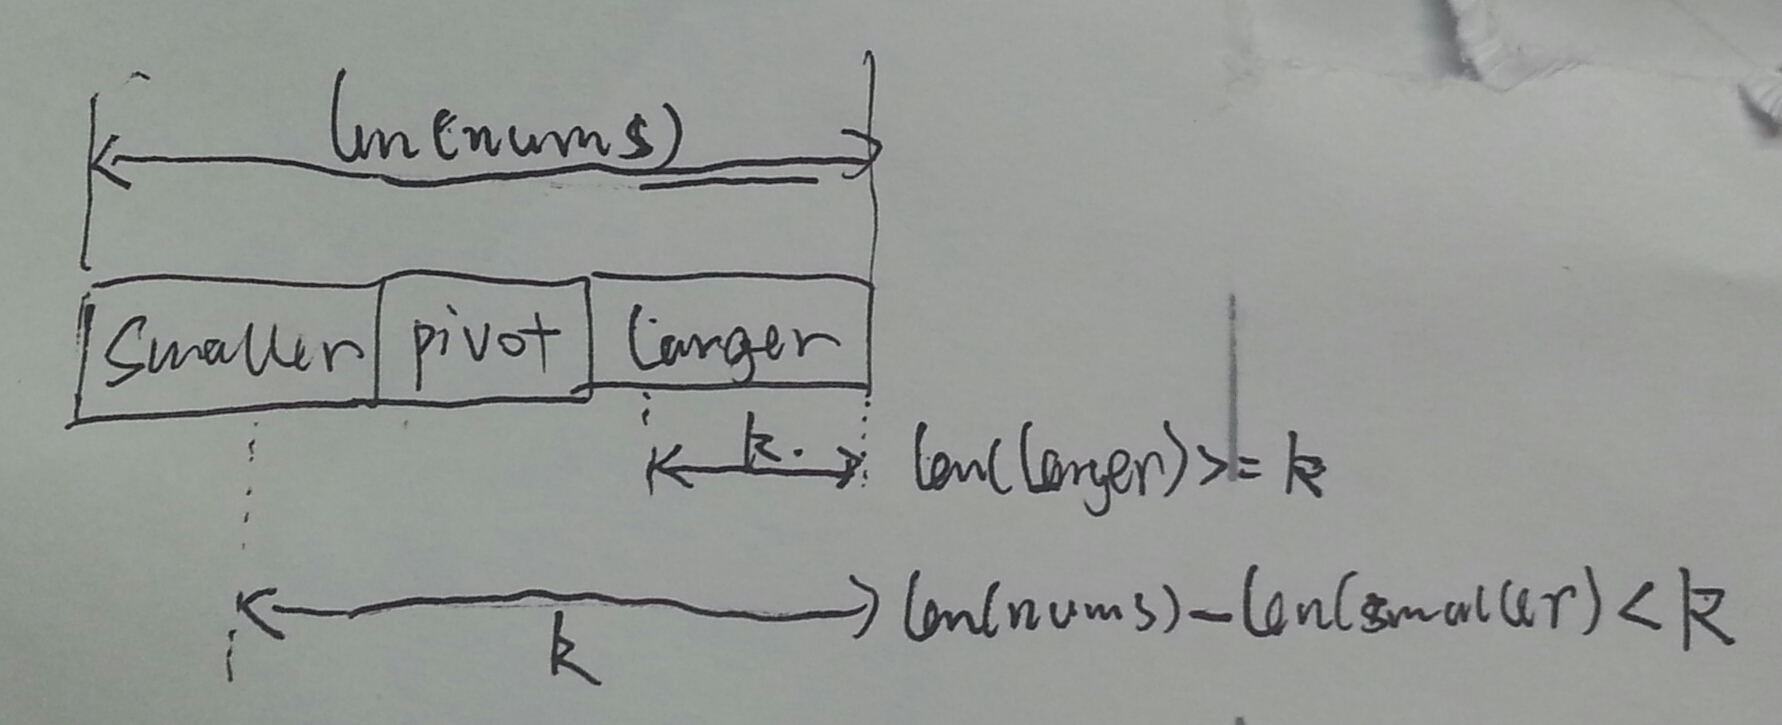 len(nums)
smaller pivot larger
k. len(larger) >= k
len(nums) - len(smaller) < k
k